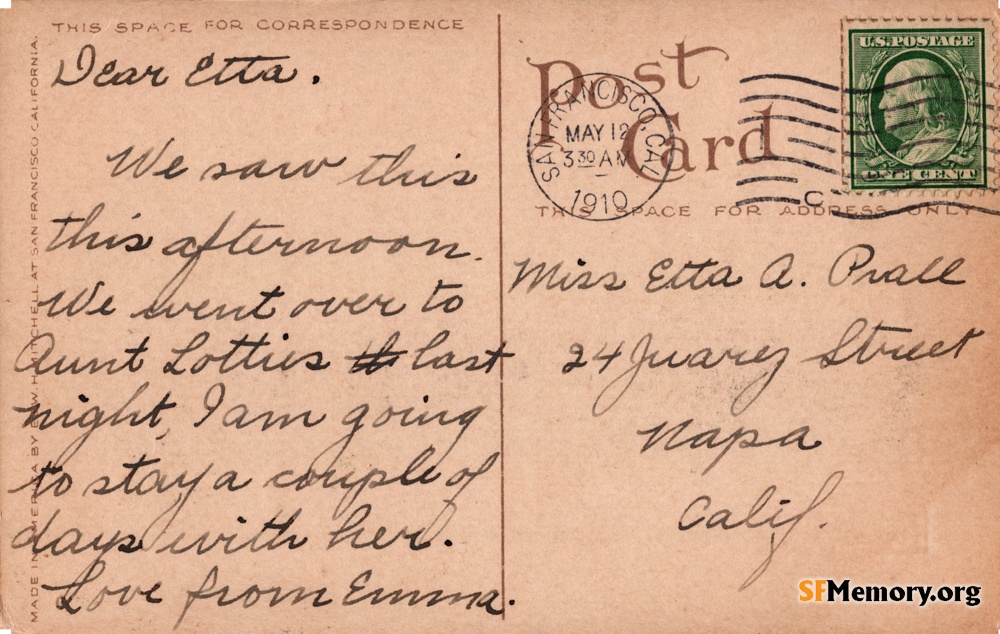 THIS SPACE FOR CORRESPONDENCE
Dear Etta.
We saw this
this afternoon.
We went over to
Aunt Lotties last
night, I am going
to stay a couple of
days with her.
Love from Emma.
MADE IN AMERICA BY EDW. H. MITCHELL AT SAN FRANCISCO, CALIFORNIA.
Post
Card
SAN FRANCISCO, CAL.
MAY 12
3 30 AM
1910
U.S. POSTAGE
ONE CENT
C
THIS SPACE FOR ADDRESS ONLY
Miss Etta A. Prall
24 Juarez Street
Napa
Calif.
SFMemory.org